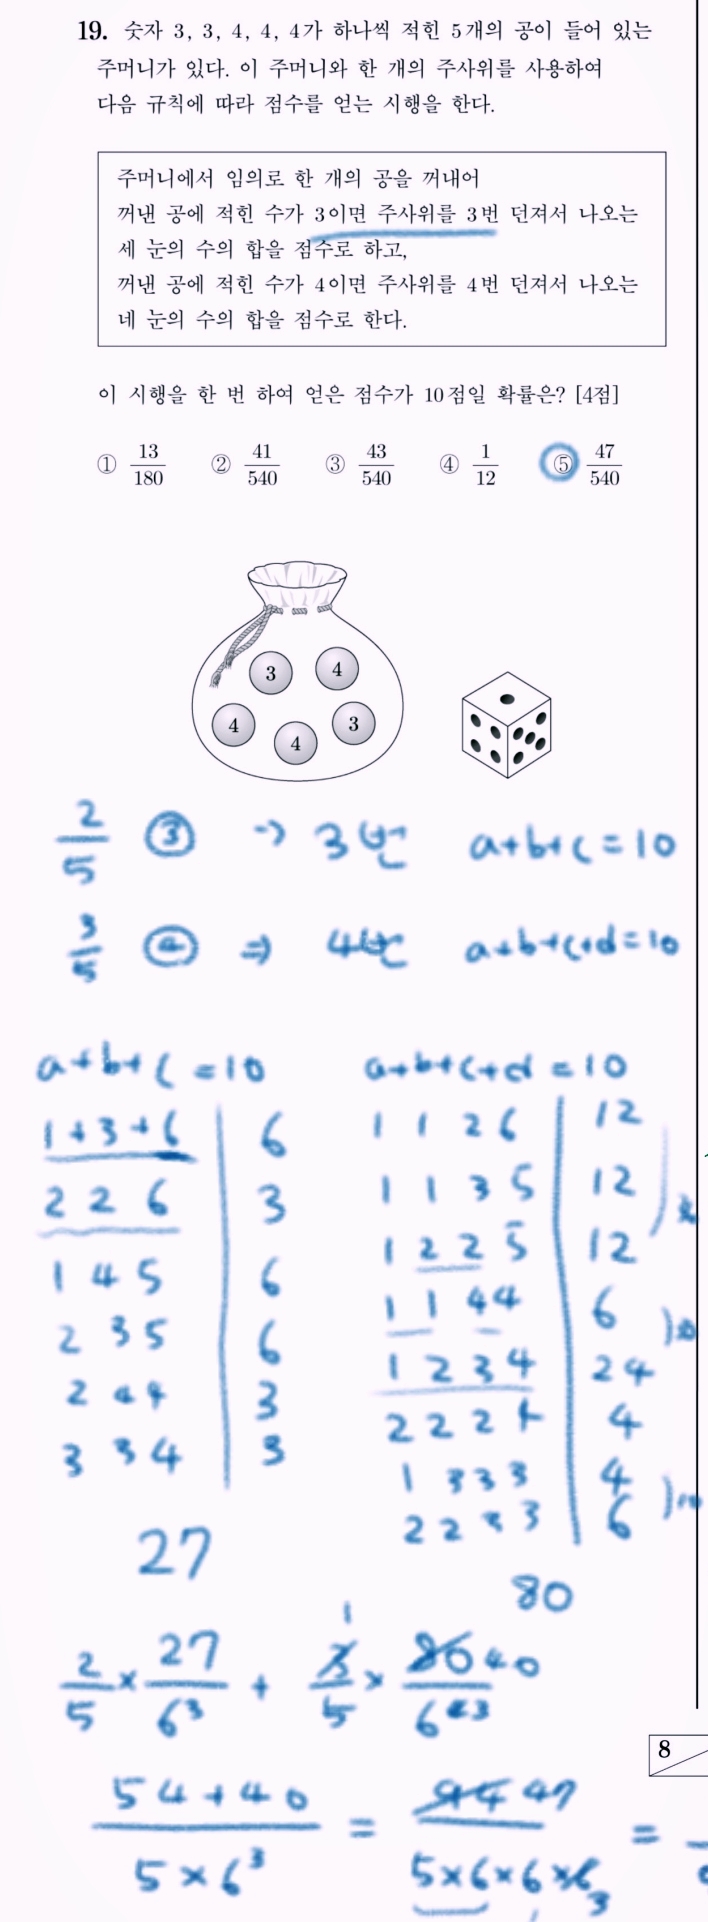 19. 숫자 3, 3, 4, 4, 4가 하나씩 적힌 5개의 공이 들어 있는
주머니가 있다. 이 주머니와 한 개의 주사위를 사용하여
다음 규칙에 따라 점수를 얻는 시행을 한다.
주머니에서 임의로 한 개의 공을 꺼내어
꺼낸 공에 적힌 수가 3이면 주사위를 3번 던져서 나오는
세 눈의 수의 합을 점수로 하고,
꺼낸 공에 적힌 수가 4이면 주사위를 4번 던져서 나오는
네 눈의 수의 합을 점수로 한다.
이 시행을 한 번 하여 얻은 점수가 10점일 확률은? [4점]
① 13/180 ② 41/540 ③ 43/540 ④ 1/12 ⑤ 47/540
3 4
4 4 3
2/5 ③ → 3번 a+b+c=10
3/5 ④ ⇒ 4번 a+b+c+d=10
a+b+c=10 a+b+c+d=10
1+3+6 6 1 1 2 6 12
2 2 6 3 1 1 3 5 12
1 4 5 6 1 2 2 5 12
2 3 5 6 1 1 4 4 6
2 4 4 3 1 2 3 4 24
3 3 4 3 2 2 2 4 4
1 3 3 3 4
2 2 3 3 6
27 80
2/5 × 27/6³ + 3/5 × 80/6⁴ 1 40 3
54+40/5×6³ = 94/5×6×6×6 47 3 =
8